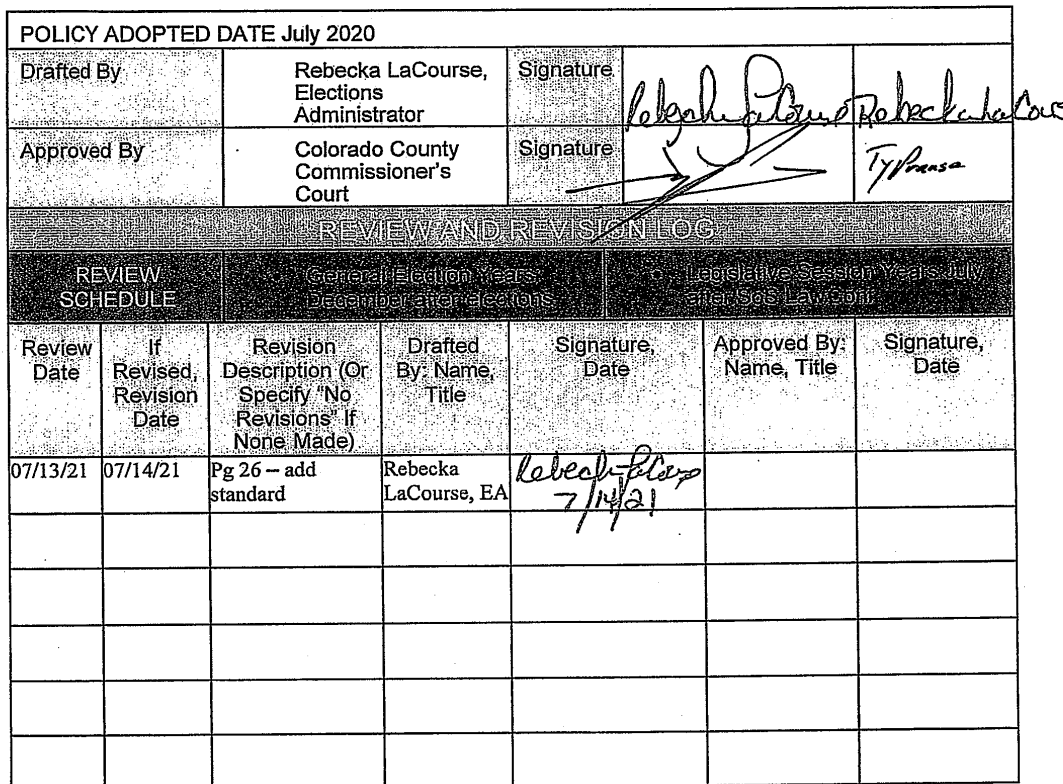 POLICY ADOPTED DATE July 2020
Drafted By
Rebecka LaCourse,
Elections
Administrator
Signature
Rebecka LaCourse
Rebecka LaCours
Approved By
Colorado County
Commissioner's
Court
Signature
Ty Prause
REVIEW AND REVISION LOG
REVIEW
SCHEDULE
General Election Years
December after elections
Legislative Session Years July
after SoS Law Conf.
Review
Date
If
Revised,
Revision
Date
Revision
Description (Or
Specify "No
Revisions" If
None Made)
Drafted
By: Name,
Title
Signature,
Date
Approved By:
Name, Title
Signature,
Date
07/13/21
07/14/21
Pg 26 – add
standard
Rebecka
LaCourse, EA
Rebecka LaCourse
7/14/21